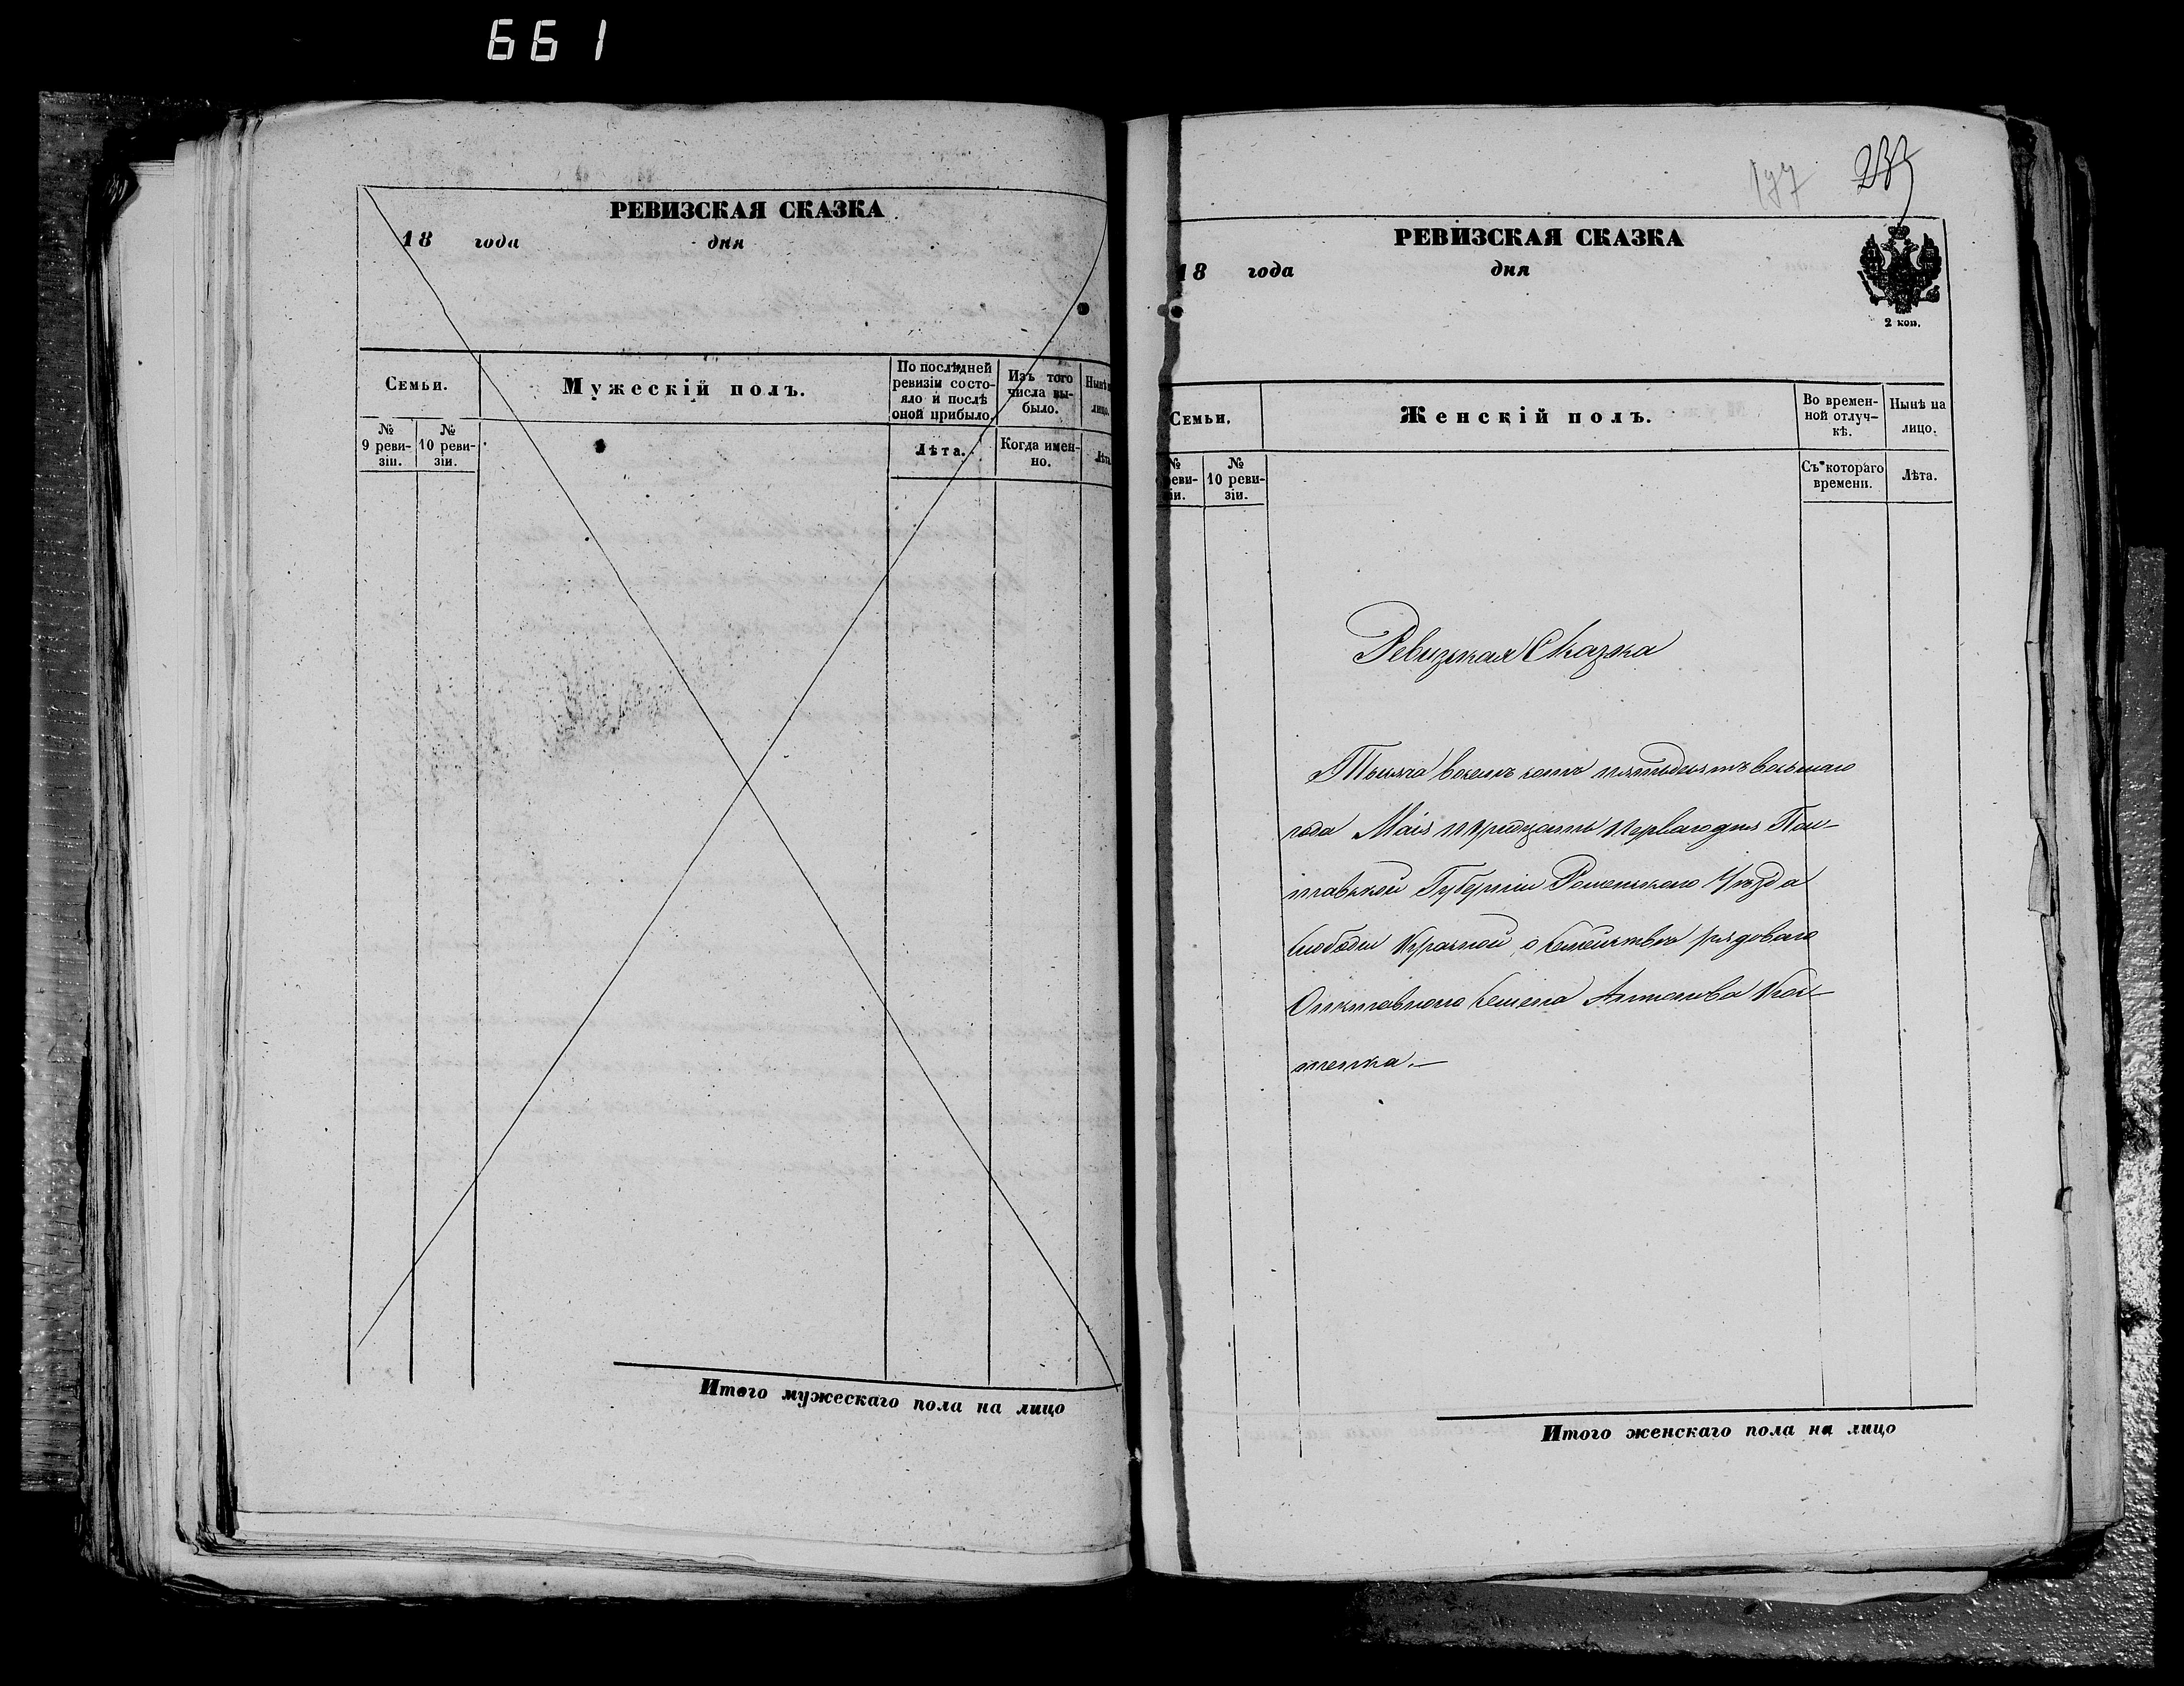 661
РЕВИЗСКАЯ СКАЗКА
18 года дня
Семьи.
Мужескій полъ.
По послѣдней ревизіи состояло и послѣ оной прибыло.
Изъ того числа выбыло.
Нынѣ
лицо.
№ 9 ревизіи.
№ 10 ревизіи.
Лѣта.
Когда именно.
Лѣта
Итого мужескаго пола на лицо
197
РЕВИЗСКАЯ СКАЗКА
18 года дня
2 коп.
Семьи.
Женскій полъ.
Во временной отлучкѣ.
Нынѣ на лицо.
№ реви-зіи.
№ 10 ревизіи.
Съ котораго времени.
Лѣта.
Ревизская Сказка
Тысяча восемь сотъ пятьдесятъ восьмаго
года Маія тридцать перваго дня Пол-
тавской Губерніи Роменскаго Уѣзда
Слободы Красной, о семействѣ рядоваго
Отставнаго Семена Антонова
Итого женскаго пола на лицо